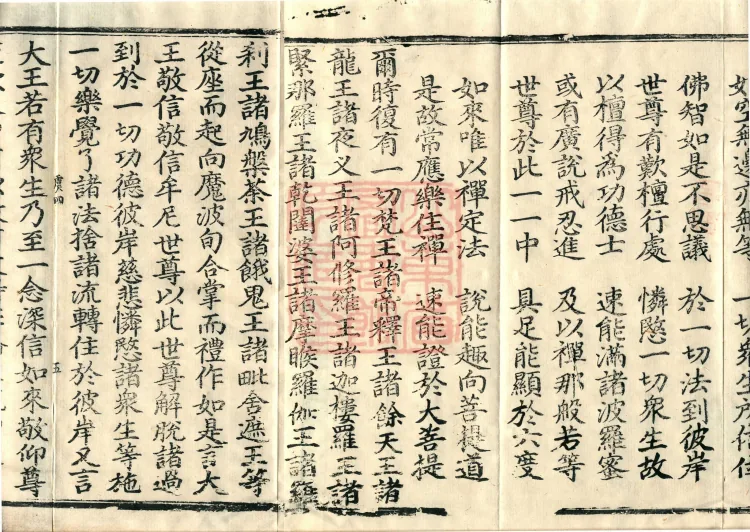 佛智如是不思議　於一切法到彼岸
世尊有歎檀行處　憐愍一切衆生故
以檀得為功德士　速能滿諸波羅蜜
或有廣說戒忍進　及以禪那般若等
世尊於此一一中　具足能顯於六度
如來唯以禪定法　說能趣向菩提道
是故常應樂住禪　速能證於大菩提
爾時復有一切梵王諸帝釋王諸餘天王諸
龍王諸夜叉王諸阿修羅王諸迦樓羅王諸
緊那羅王諸乾闥婆王諸摩睺羅伽王諸羅
剎王諸鳩槃荼王諸餓鬼王諸毗舍遮王等
從座而起向魔波旬合掌而禮作如是言大
王敬信敬信牟尼世尊以此世尊解脫諸過
到於一切功德彼岸慈悲憐愍諸衆生等施
一切樂覺了諸法捨諸流轉住於彼岸又言
虞四　五
大王若有衆生乃至一念深信如來敬仰尊